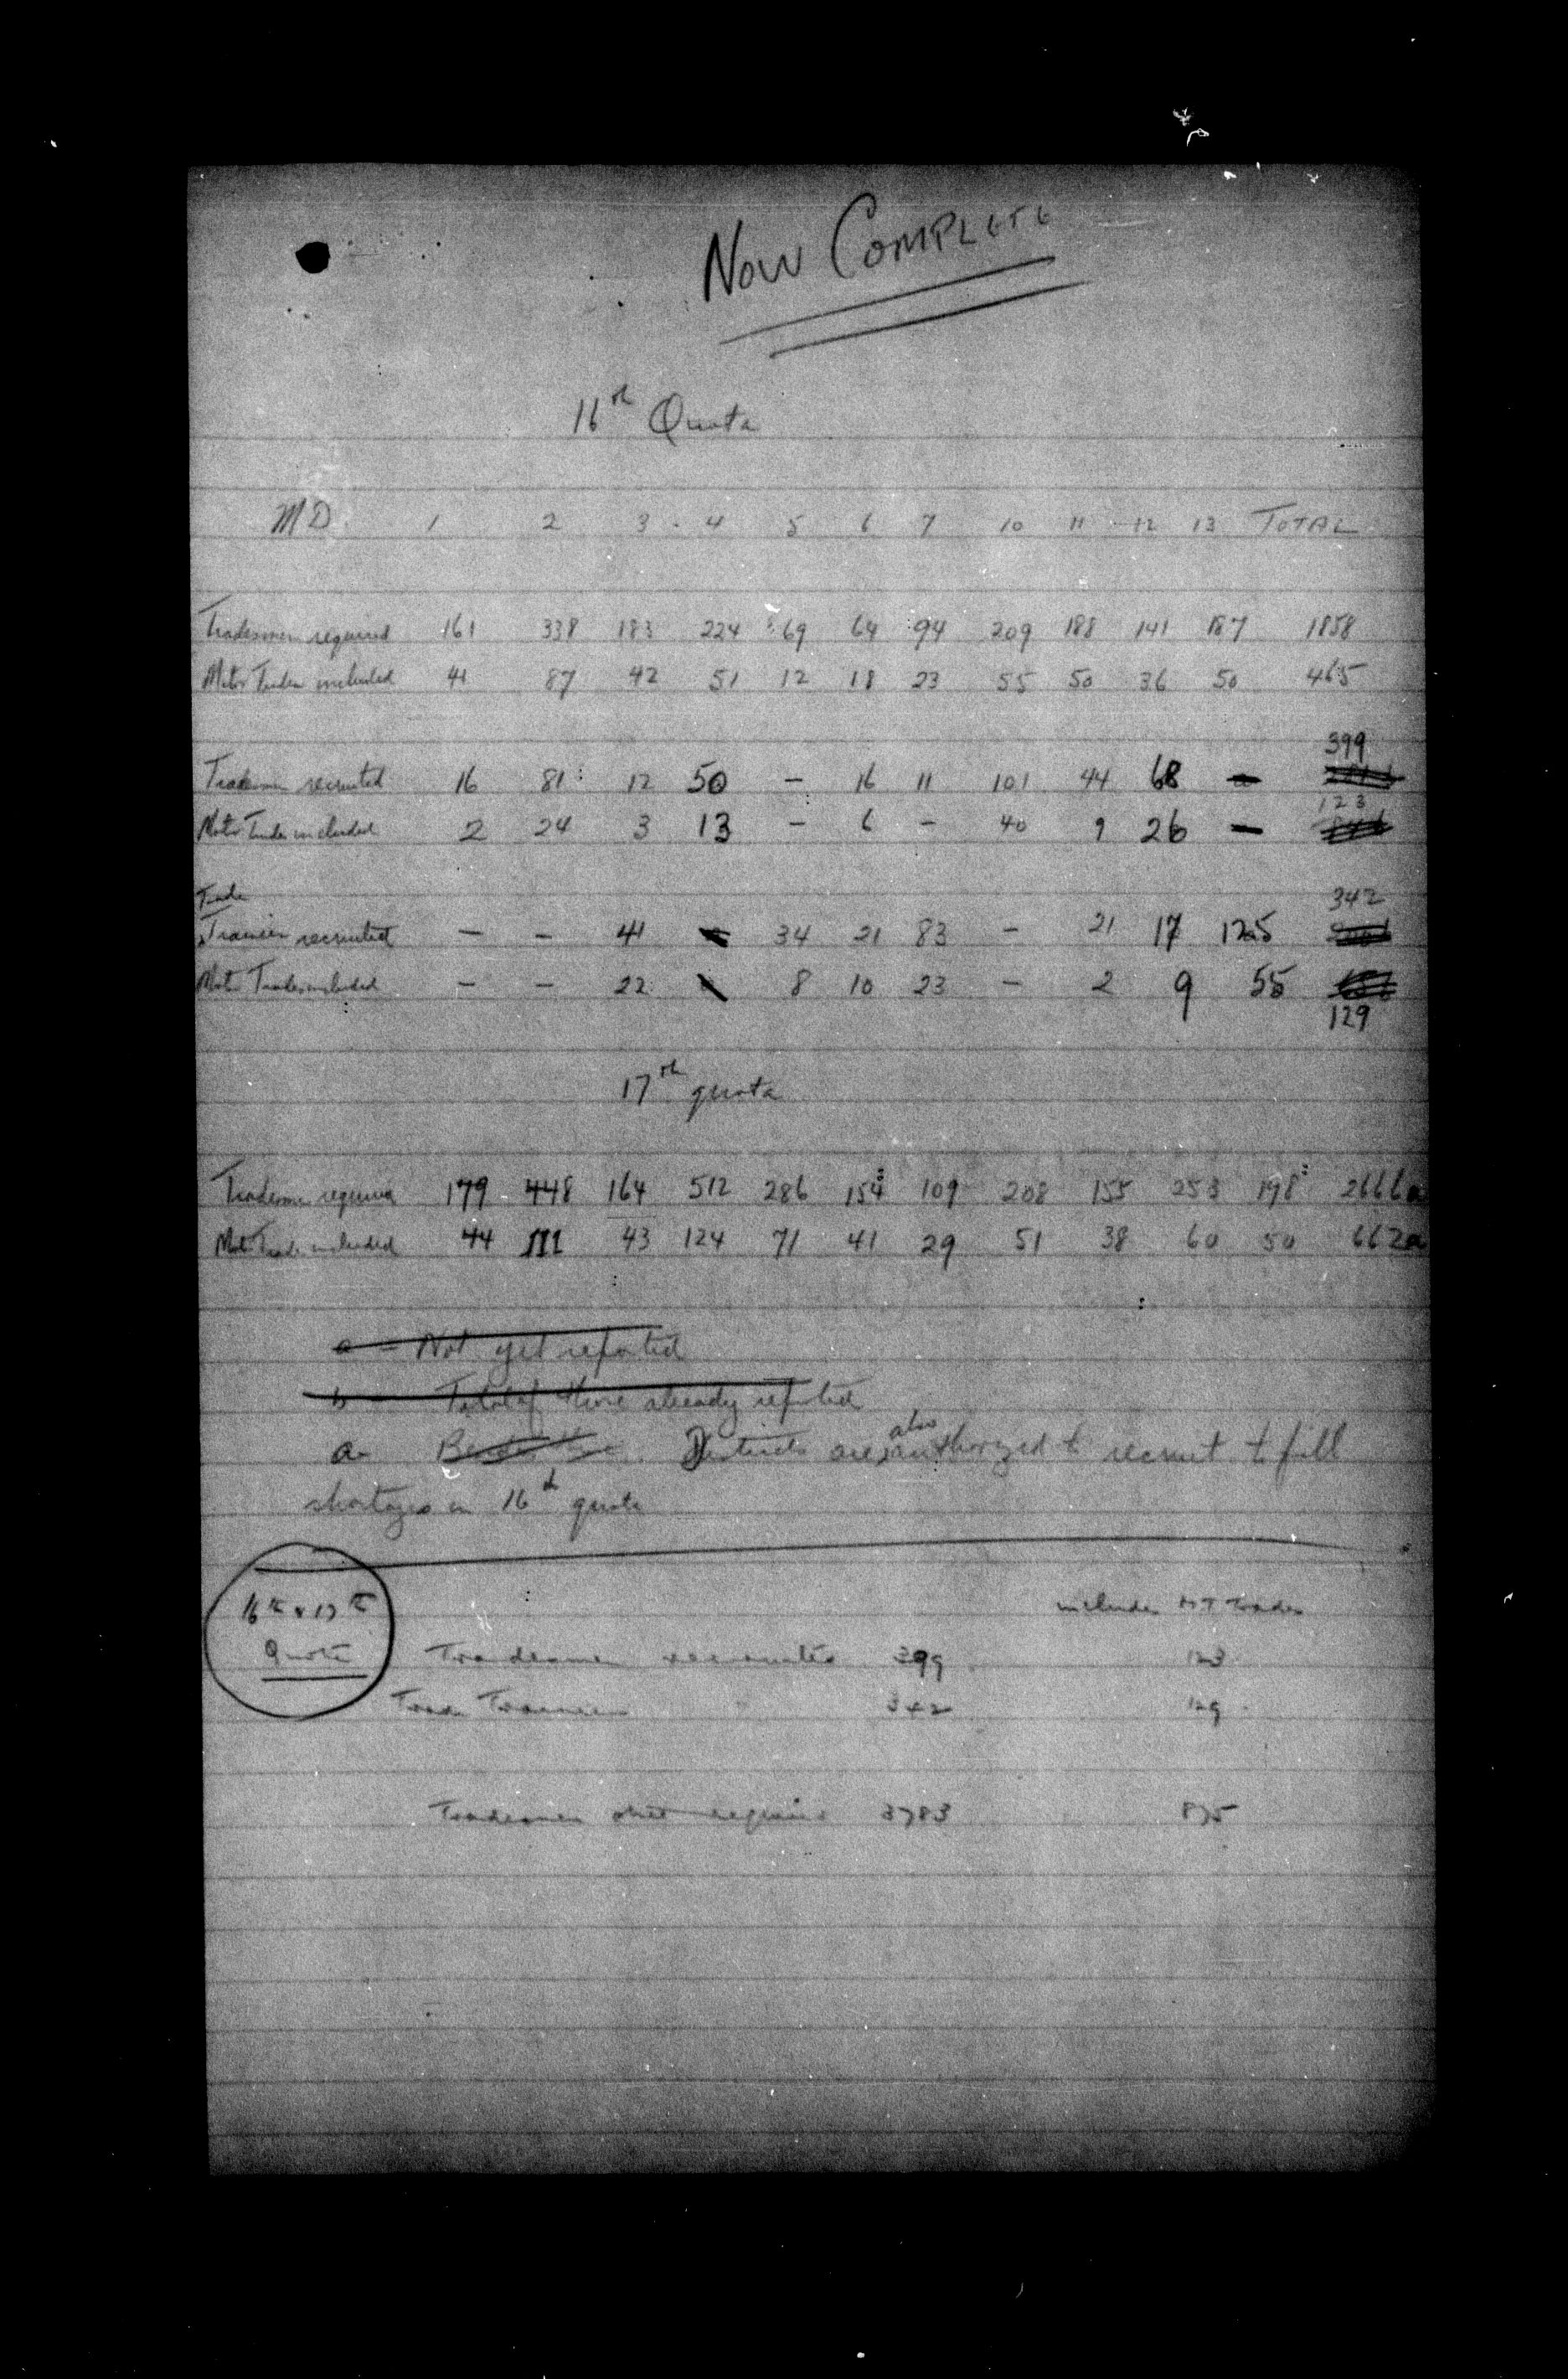 NOW COMPLETE
16th Quota
MD 1 2 3 4 5 6 7 10 11 12 13 TOTAL
Tradesmen required 161 338 183 224 69 64 94 209 188 141 187 1858
Motor Trades included 41 87 42 51 12 18 23 55 50 36 50 465
399
Tradesmen recruited 16 81 12 50 - 16 11 101 44 68 -
123
Motor Trades included 2 24 3 13 - 6 - 40 9 26 -
Trade 342
Trainees recruited - - 41 34 21 83 - 21 17 125
Motor Trades included - - 22 8 10 23 - 2 9 55
129
17th quota
Tradesmen required 179 448 164 512 286 154 109 208 155 253 198 2666a
Motor Trades included 44 111 43 124 71 41 29 51 38 60 50 662a
a - Not yet reported
b - Total of those already reported
a- Districts are also authorized to recruit to fill
shortages in 16th quota
16th & 17th includes MT Trades
Quota Tradesmen recruited 399 123
Trade Trainees 342 129
Tradesmen still required 3783 875